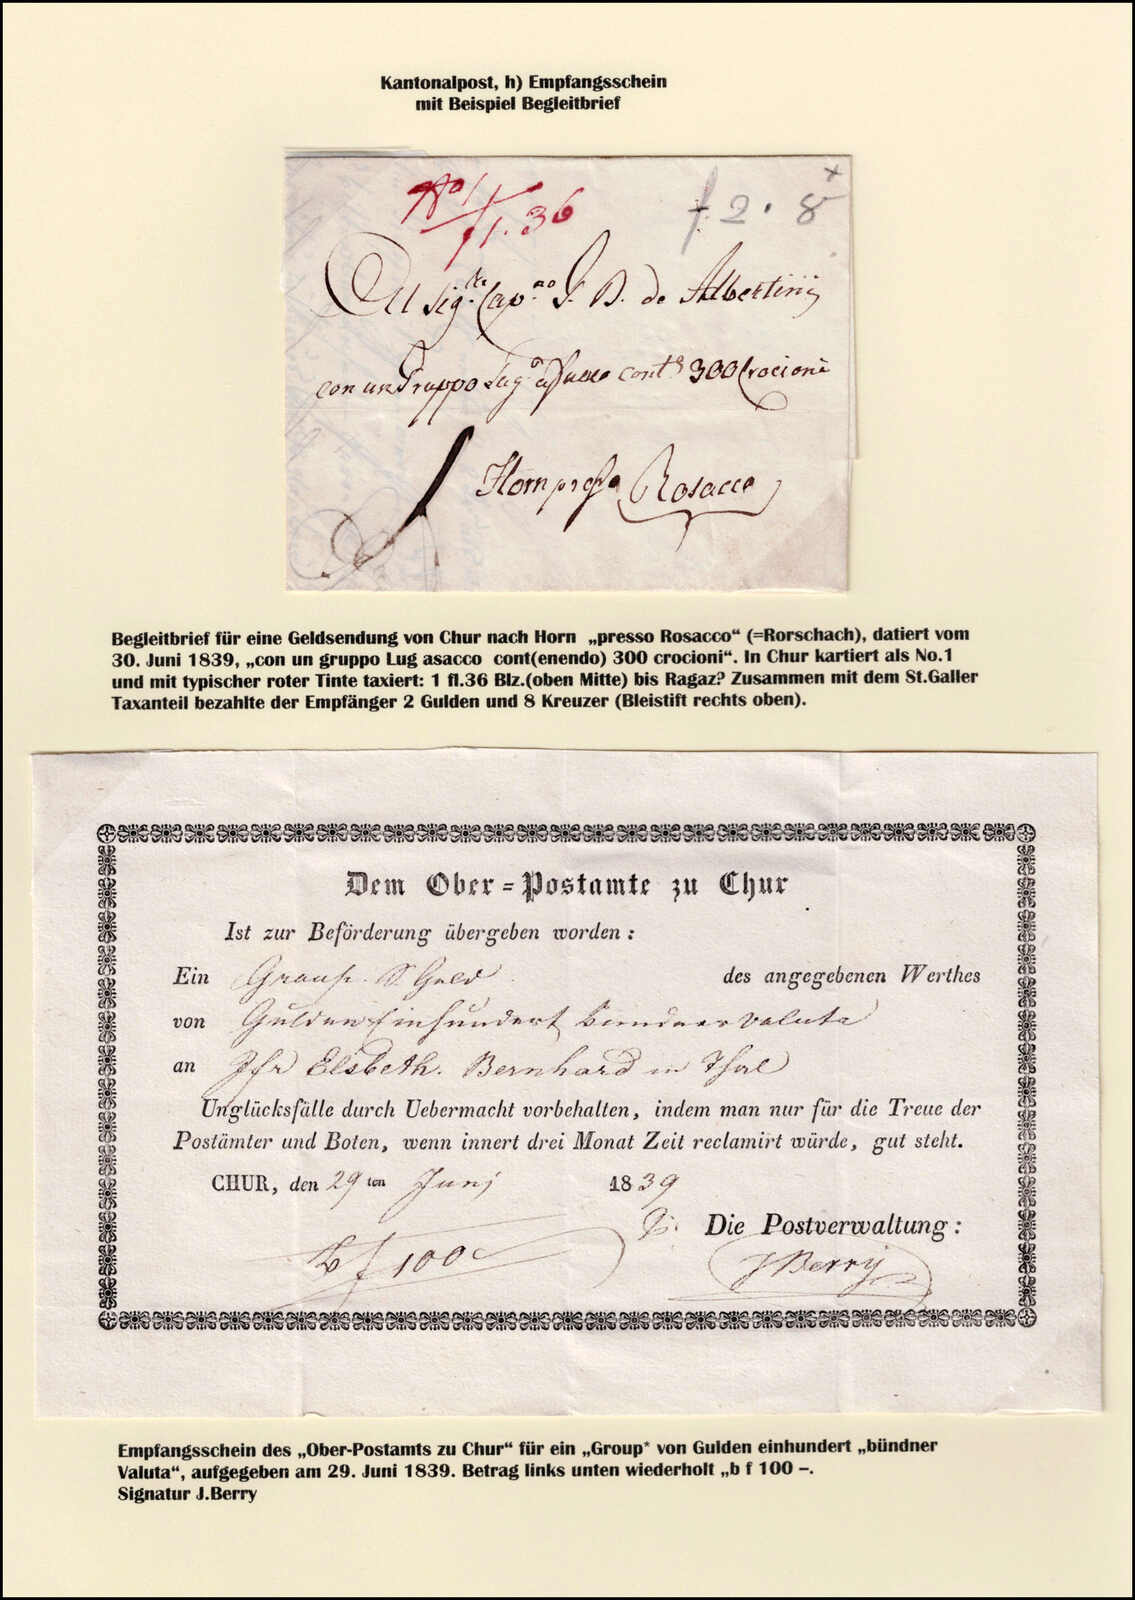 Kantonalpost, h) Empfangsschein
mit Beispiel Begleitbrief
No 1
f 1.36
f. 2. 8
Al Sig.re Cap.no G. B. de Albertini
con un Gruppo Lug asacco cont.e 300 Crocioni
Horn presso Rosacco
Begleitbrief für eine Geldsendung von Chur nach Horn „presso Rosacco“ (=Rorschach), datiert vom
30. Juni 1839, „con un gruppo Lug asacco cont(enendo) 300 crocioni“. In Chur kartiert als No.1
und mit typischer roter Tinte taxiert: 1 fl.36 Blz.(oben Mitte) bis Ragaz? Zusammen mit dem St.Galler
Taxanteil bezahlte der Empfänger 2 Gulden und 8 Kreuzer (Bleistift rechts oben).
Dem Ober=Postamte zu Chur
Ist zur Beförderung übergeben worden:
Ein Group S. Geld des angegebenen Werthes
von Gulden Einhundert bündner valuta
an Jfr Elsbeth. Bernhard in Thal
Unglücksfälle durch Uebermacht vorbehalten, indem man nur für die Treue der
Postämter und Boten, wenn innert drei Monat Zeit reclamirt würde, gut steht.
CHUR, den 29 ten Junj 1839
Die Postverwaltung:
b f 100 J Berry
Empfangsschein des „Ober-Postamts zu Chur“ für ein „Group“ von Gulden einhundert „bündner
Valuta“, aufgegeben am 29. Juni 1839. Betrag links unten wiederholt „b f 100 –.
Signatur J.Berry